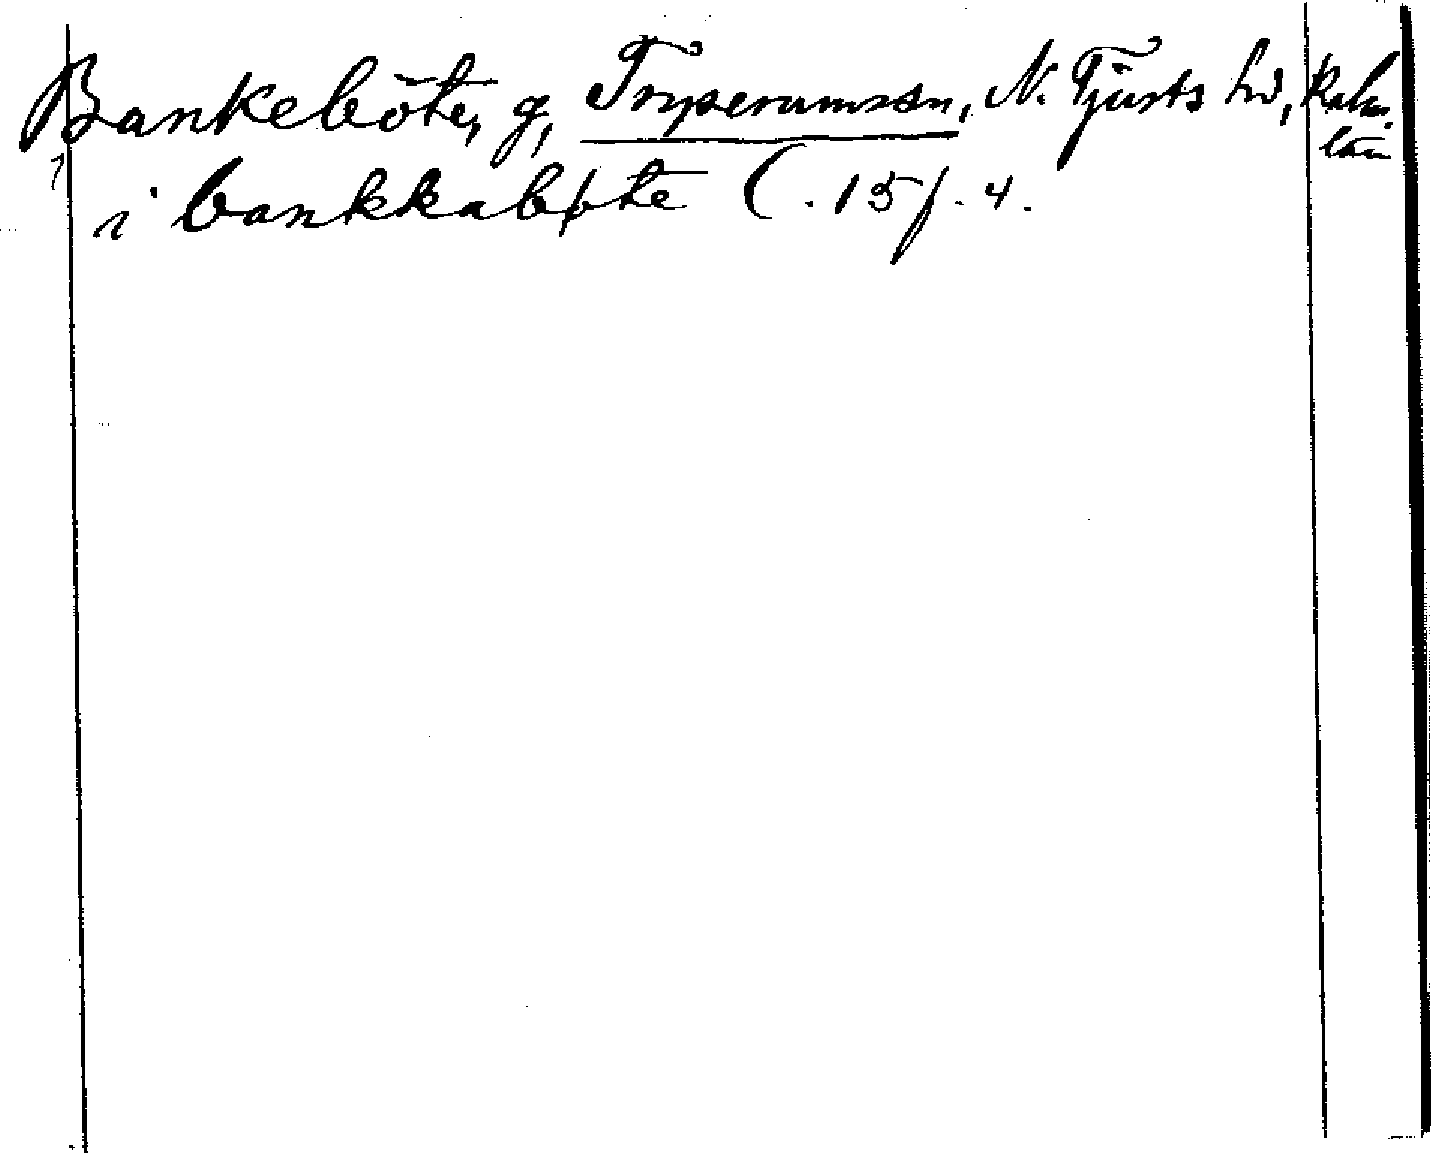 Bankeböte, g, Tryserums sn, N. Tjusts hd, Kalm. län
i bankkabøte ( . 15/. 4.